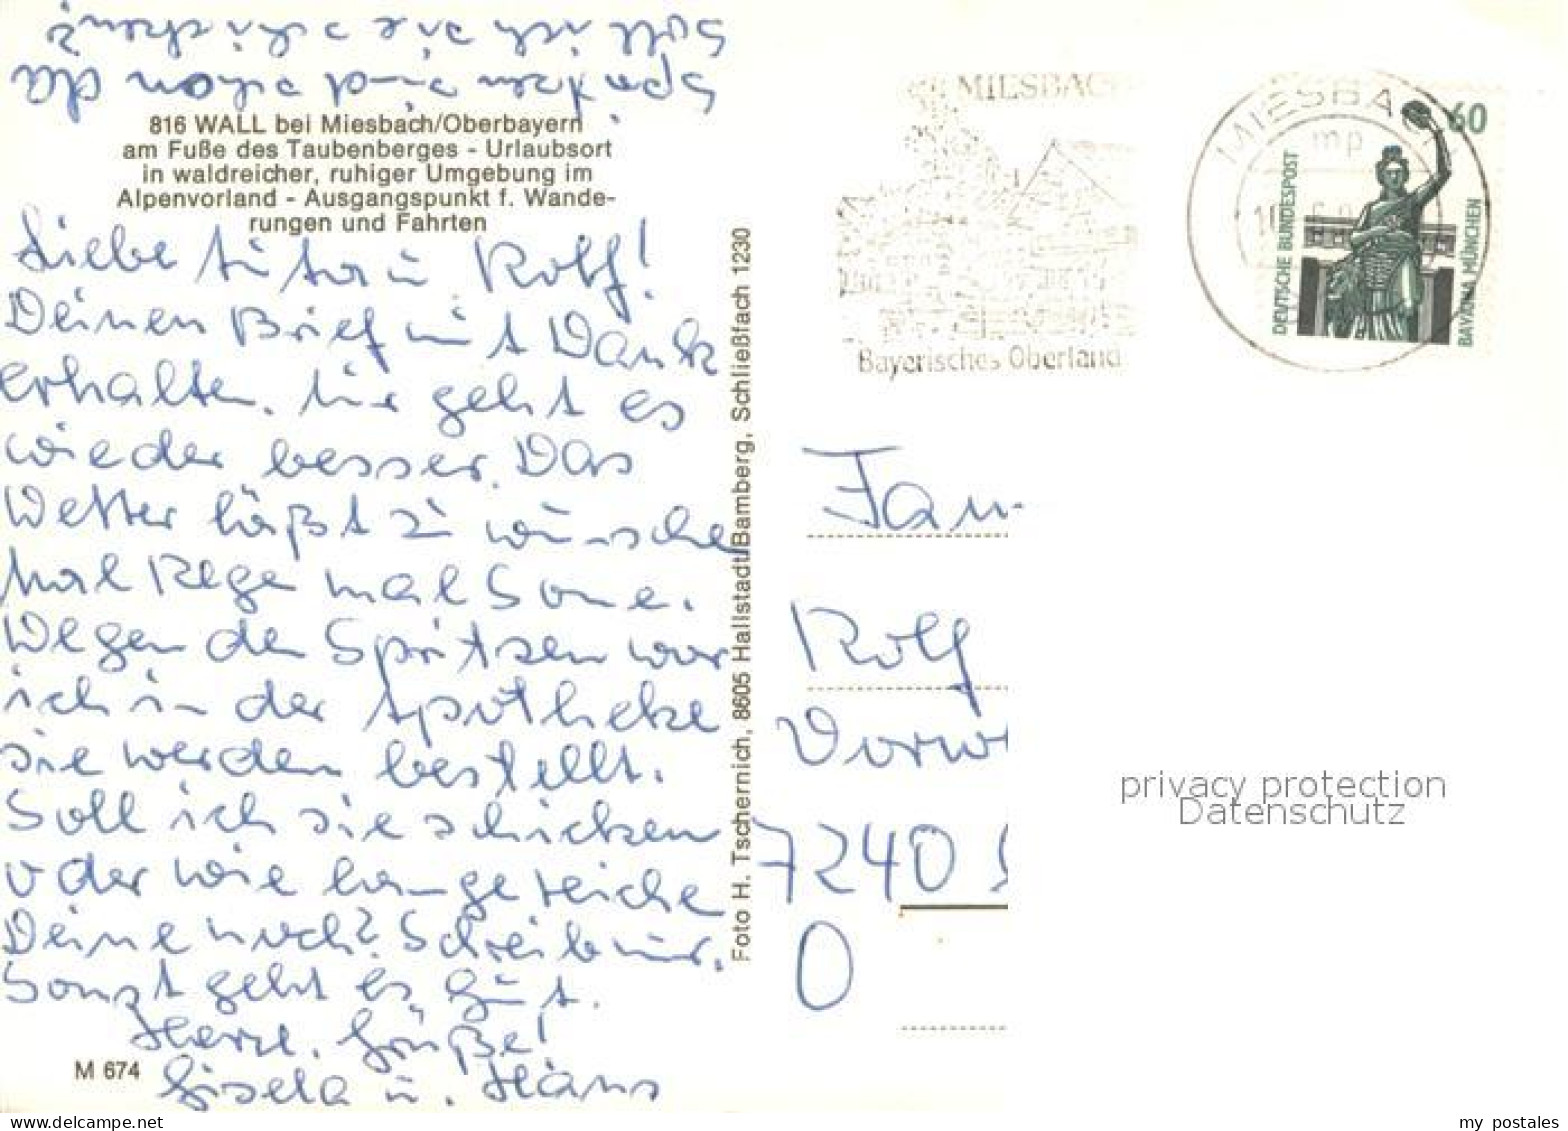 Spritzen sind schon da
Soll ich sie schicken?
816 WALL bei Miesbach/Oberbayern
am Fuße des Taubenberges - Urlaubsort
in waldreicher, ruhiger Umgebung im
Alpenvorland - Ausgangspunkt f. Wande-
rungen und Fahrten
Liebe u. Rolf!
Deinen Brief mit Dank
erhalten. Mir geht es
wieder besser. Das
Wetter läßt zu wünsche
mal Rege mal Sone.
Wegen den Spritzen war
ich in der Apotheke
sie werden bestellt.
Soll ich sie schicken
oder wie lange reiche
Deine noch? Schreib mir.
Sonst geht es gut.
Herzl. Grüße!
Gisela u. Hans
M 674
Foto H. Tschernich, 8605 Hallstadt/Bamberg, Schließfach 1230
MIESBAC
Bayerisches Oberland
MIESBACH
mp
60
DEUTSCHE BUNDESPOST
BAVARIA MÜNCHEN
Fam
Rolf
Vorw
7240
O
privacy protection
Datenschutz
www.delcampe.net
my_postales